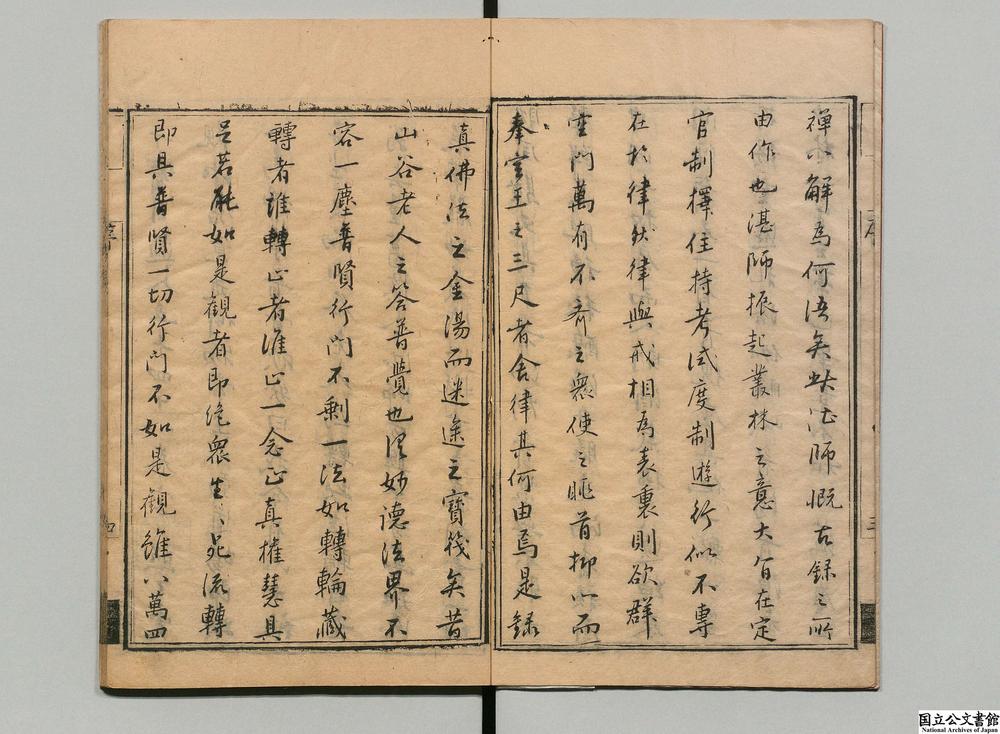 禪不解為何語矣此湛師慨古録之所
由作也湛師振起叢林之意大旨在定
官制擇住持考試度制遊行似不專
在於律然律與戒相為表裏則欲群
空門萬有不齊之衆使之眡首抑心而
奉空王之三尺者舍律其何由焉是録
真佛法之金湯而迷途之寶筏矣昔
山谷老人之答普覺也淫妙德法界不
容一塵普賢行門不剩一法如轉輪藏
轉者誰轉止者誰止一念正真權慧具
足若能如是觀者即絶衆生生死流轉
即具普賢一切行門不如是觀雖八萬四
序
三
四
国立公文書館
National Archives of Japan